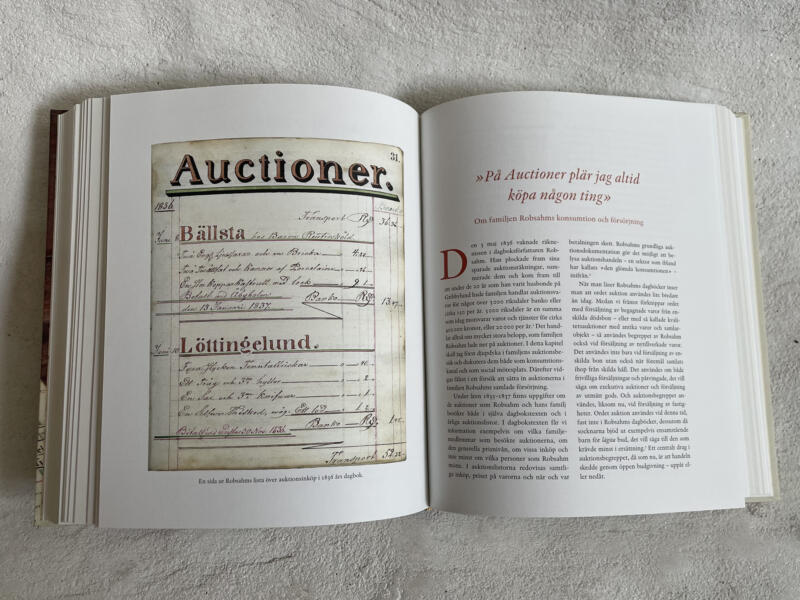 31.
Auctioner.
1836
Transport
Bällsta hos Baron
Betalt med Afgiften
Banko
den 13 Januarii 1837.
Löttingelund.
Fyra stycken Tenntallrickar
Ett Tråg och 3ne hyllor
En Sax och 3ne knifvar
Banko
Transport
En sida ur Robsahms lista över auktionsinköp i 1836 års dagbok.
»På Auctioner plär jag altid
köpa någon ting»
Om familjen Robsahms konsumtion och försörjning
Den 5 maj 1856 vaknade räkne-
nissen i dagboksförfattaren Rob-
sahm. Han plockade fram sina
sparade auktionsräkningar, sum-
merade dem och kom fram till
att under de 20 år som han varit husbonde på
Gubbylund hade familjen handlat auktionsva-
ror för något över 5 000 riksdaler banko eller
cirka 250 per år. 5 000 riksdaler är en summa
som idag motsvarar varor och tjänster för cirka
kronor, eller 20 000 per år.¹ Det hand-
lar alltså om mycket stora belopp, som familjen
Robsahm lade ner på auktioner. I detta kapitel
skall jag först djupdyka i familjens auktionsbe-
sök och diskutera dem både som konsumtions-
kanal och som social mötesplats. Därefter vid-
gas fältet i ett försök att sätta in auktionerna i
familjen Robsahms samlade försörjning.
Under åren 1835–1857 finns uppgifter om
de auktioner som Robsahm och hans familj
besökte både i själva dagbokstexten och i
årliga auktionslistor. I dagboken får vi
information exempelvis om vilka familje-
medlemmar som besökte auktionerna, om
den generella prisnivån, om vissa inköp och
inte minst om vilka personer som Robsahm
mötte. I auktionslistorna redovisas samtli-
ga inköp, priset på varorna och när och var
betalningen skett. Robsahms grundliga auk-
tionsdokumentation gör det möjligt att be-
lysa auktionshandeln – en sektor som ibland
har kallats »den glömda konsumtionen» –
inifrån.²
När man läser Robsahms dagböcker inser
man att ordet auktion användes lite bredare
än idag. Medan vi främst förknippar ordet
med försäljning av begagnade varor från en-
skilda dödsbon – eller med så kallade kvali-
tetsauktioner med antika varor och samlar-
objekt – så användes begreppet av Robsahm
också vid försäljning av nytillverkade varor.
Det användes inte bara vid försäljning av en-
skilda bon utan också när föremål samlats
ihop från skilda håll. Det användes om både
frivilliga försäljningar och påtvingade, det vill
säga om exekutiva auktioner efter utmätning
av utmätt gods. Och auktionsbegreppet an-
vändes, liksom nu, vid försäljning av fastig-
heter. Ordet auktion användes vid denna tid,
fast inte i Robsahms dagböcker, dessutom då
socknarna bjöd ut exempelvis ensamstående
barn för lägsta bud, det vill säga till den som
krävde minst i ersättning.³ Ett centralt drag i
auktionsbegreppet, då som nu, är att handeln
skedde genom öppen budgivning – uppåt el-
ler nedåt.